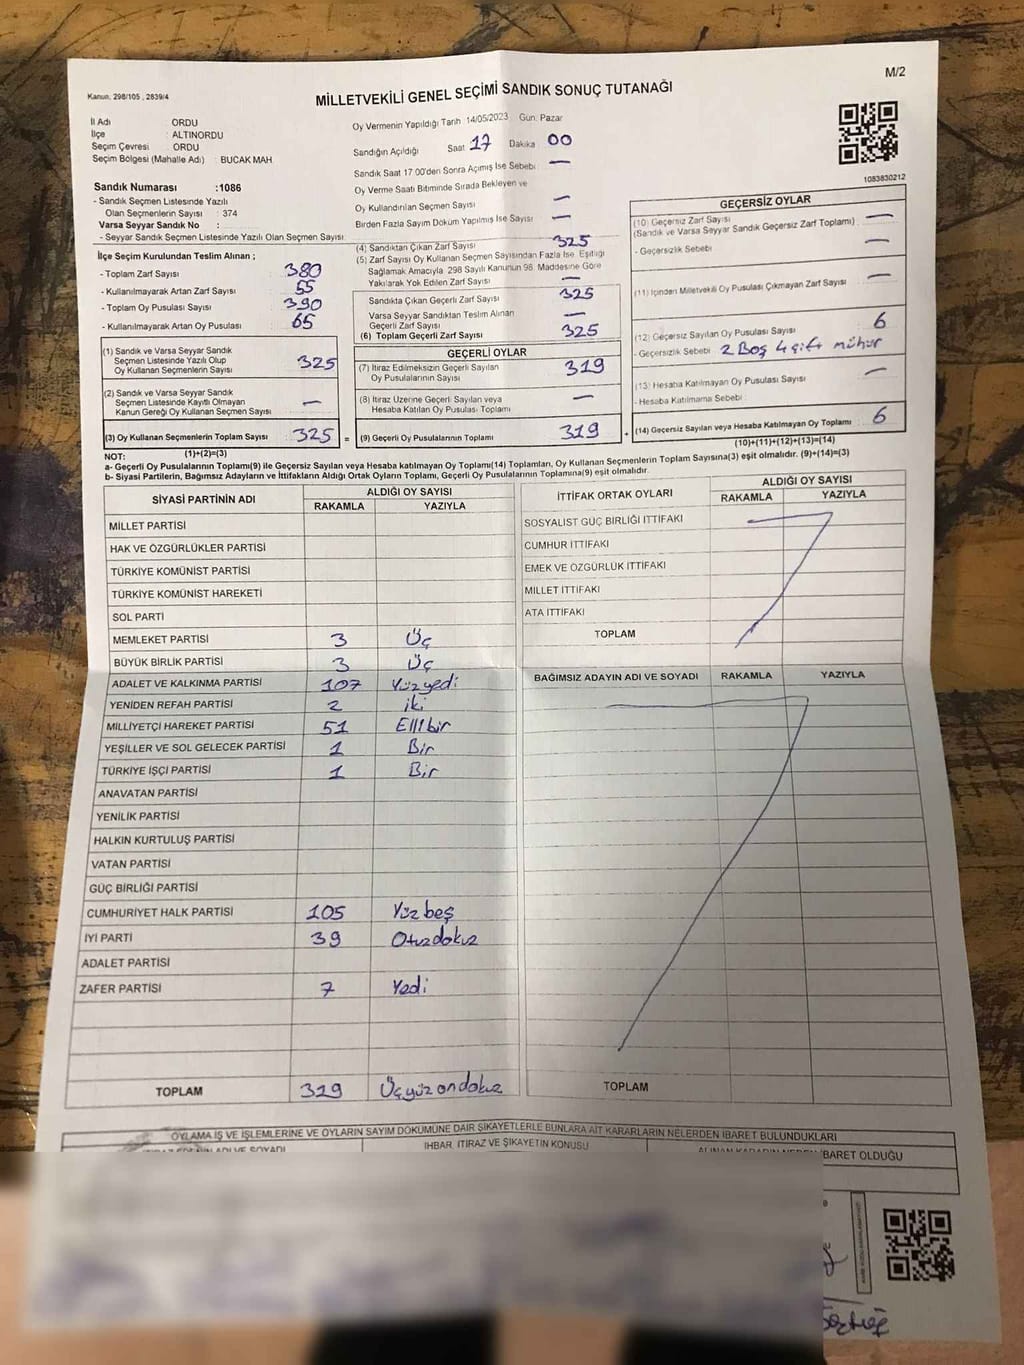 M/2
Kanun, 298/105 , 2839/4
MİLLETVEKİLİ GENEL SEÇİMİ SANDIK SONUÇ TUTANAĞI
İl Adı ORDU
İlçe ALTINORDU
Seçim Çevresi ORDU
Seçim Bölgesi (Mahalle Adı) : BUCAK MAH
Sandık Numarası :1086
- Sandık Seçmen Listesinde Yazılı
Olan Seçmenlerin Sayısı : 374
Varsa Seyyar Sandık No :
- Seyyar Sandık Seçmen Listesinde Yazılı Olan Seçmen Sayısı
İlçe Seçim Kurulundan Teslim Alınan ;
- Toplam Zarf Sayısı 380
- Kullanılmayarak Artan Zarf Sayısı 55
- Toplam Oy Pusulası Sayısı 390
- Kullanılmayarak Artan Oy Pusulası 65
(1) Sandık ve Varsa Seyyar Sandık
Seçmen Listesinde Yazılı Olup
Oy Kullanan Seçmenlerin Sayısı 325
(2) Sandık ve Varsa Seyyar Sandık
Seçmen Listesinde Kayıtlı Olmayan
Kanun Gereği Oy Kullanan Seçmen Sayısı —
(3) Oy Kullanan Seçmenlerin Toplam Sayısı 325 =
(1)+(2)=(3)
Oy Vermenin Yapıldığı Tarih 14/05/2023 Gün: Pazar
Sandığın Açıldığı Saat 17 Dakika 00
Sandık Saat 17 00'den Sonra Açımış İse Sebebi —
Oy Verme Saati Bitiminde Sırada Bekleyen ve
Oy Kullandırılan Seçmen Sayısı —
Birden Fazla Sayım Döküm Yapılmış İse Sayısı —
(4) Sandıktan Çıkan Zarf Sayısı 325
(5) Zarf Sayısı Oy Kullanan Seçmen Sayısından Fazla İse, Eşitliği
Sağlamak Amacıyla 298 Sayılı Kanunun 98. Maddesine Göre
Yakılarak Yok Edilen Zarf Sayısı —
Sandıkta Çıkan Geçerli Zarf Sayısı 325
Varsa Seyyar Sandıktan Teslim Alınan
Geçerli Zarf Sayısı
(6) Toplam Geçerli Zarf Sayısı 325
GEÇERLİ OYLAR
(7) İtiraz Edilmeksizin Geçerli Sayılan
Oy Pusulalarının Sayısı 319
(8) İtiraz Üzerine Geçerli Sayılan veya
Hesaba Katılan Oy Pusulası Toplamı —
(9) Geçerli Oy Pusulalarının Toplamı 319 +
1083830212
GEÇERSİZ OYLAR
(10) Geçersiz Zarf Sayısı
(Sandık ve Varsa Seyyar Sandık Geçersiz Zarf Toplamı) —
- Geçersizlik Sebebi —
(11) İçinden Milletvekili Oy Pusulası Çıkmayan Zarf Sayısı —
(12) Geçersiz Sayılan Oy Pusulası Sayısı 6
- Geçersizlik Sebebi 2 Boş 4 çift mühür
(13) Hesaba Katılmayan Oy Pusulası Sayısı —
- Hesaba Katılmama Sebebi
(14) Geçersiz Sayılan veya Hesaba Katılmayan Oy Toplamı 6
(10)+(11)+(12)+(13)=(14)
NOT:
a- Geçerli Oy Pusulalarının Toplamı(9) ile Geçersiz Sayılan veya Hesaba katılmayan Oy Toplamı(14) Toplamları, Oy Kullanan Seçmenlerin Toplam Sayısına(3) eşit olmalıdır. (9)+(14)=(3)
b- Siyasi Partilerin, Bağımsız Adayların ve İttifakların Aldığı Ortak Oyların Toplamı, Geçerli Oy Pusulalarının Toplamına(9) eşit olmalıdır.
SİYASİ PARTİNİN ADI ALDIĞI OY SAYISI
RAKAMLA YAZIYLA
MİLLET PARTİSİ
HAK VE ÖZGÜRLÜKLER PARTİSİ
TÜRKİYE KOMÜNİST PARTİSİ
TÜRKİYE KOMÜNİST HAREKETİ
SOL PARTİ
MEMLEKET PARTİSİ 3 Üç
BÜYÜK BİRLİK PARTİSİ 3 Üç
ADALET VE KALKINMA PARTİSİ 107 Yüzyedi
YENİDEN REFAH PARTİSİ 2 iki
MİLLİYETÇİ HAREKET PARTİSİ 51 Ellibir
YEŞİLLER VE SOL GELECEK PARTİSİ 1 Bir
TÜRKİYE İŞÇİ PARTİSİ 1 Bir
ANAVATAN PARTİSİ
YENİLİK PARTİSİ
HALKIN KURTULUŞ PARTİSİ
VATAN PARTİSİ
GÜÇ BİRLİĞİ PARTİSİ
CUMHURİYET HALK PARTİSİ 105 Yüzbeş
İYİ PARTİ 39 Otuzdokuz
ADALET PARTİSİ
ZAFER PARTİSİ 7 Yedi
TOPLAM 319 Üçyüzondokuz
İTTİFAK ORTAK OYLARI ALDIĞI OY SAYISI
RAKAMLA YAZIYLA
SOSYALİST GÜÇ BİRLİĞİ İTTİFAKI
CUMHUR İTTİFAKI
EMEK VE ÖZGÜRLÜK İTTİFAKI
MİLLET İTTİFAKI
ATA İTTİFAKI
TOPLAM
BAĞIMSIZ ADAYIN ADI VE SOYADI RAKAMLA YAZIYLA
TOPLAM
OYLAMA İŞ VE İŞLEMLERİNE VE OYLARIN SAYIM DÖKÜMÜNE DAİR ŞİKAYETLERLE BUNLARA AİT KARARLARIN NELERDEN İBARET BULUNDUKLARI
İHBAR, İTİRAZ VE ŞİKAYETİN KONUSU
İBARET OLDUĞU